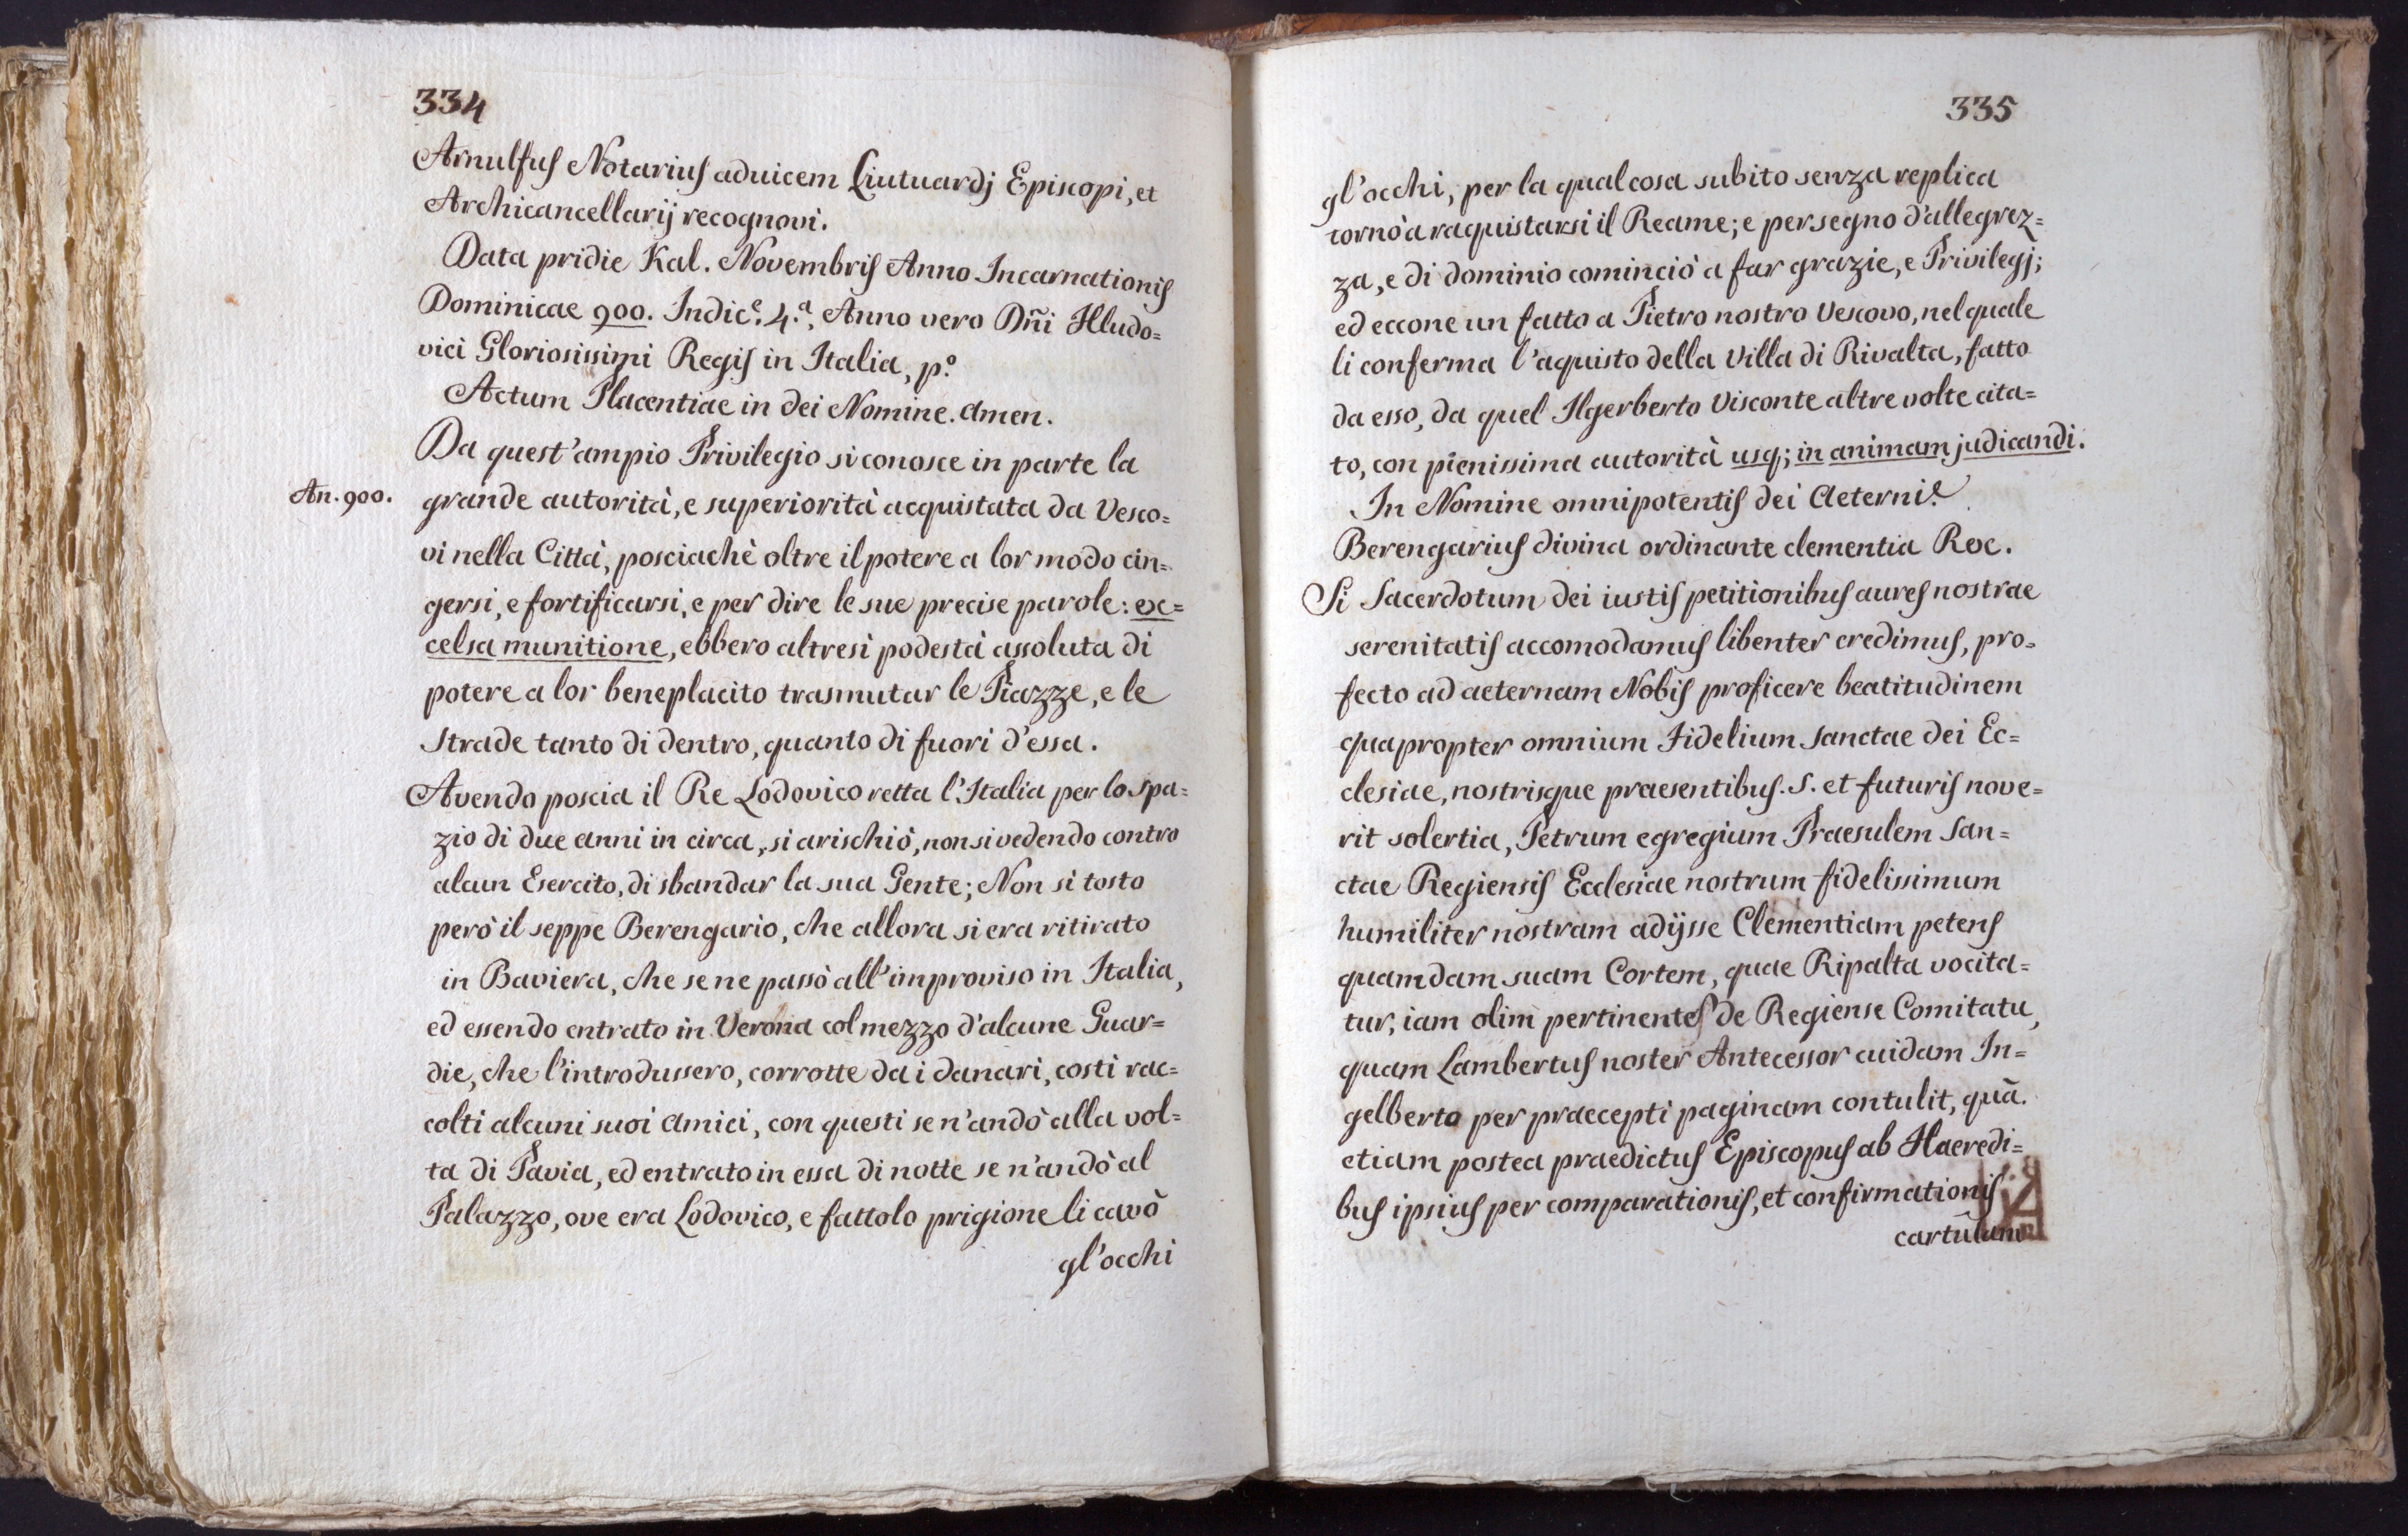 334
Arnulfus Notarius aduicem Liutuardj Episcopi, et
Archicancellarij recognovi.
Data pridie Kal. Novembris Anno Incarnationis
Dominicae 900. Indic.e 4.a, Anno vero Dñi Hludo=
vici Gloriosissimi Regis in Italia, p.o
Actum Placentiae in dei Nomine. Amen.
Da quest'ampio Privilegio si conosce in parte la
An. 900.
grande autorità, e superiorità acquistata da Vesco=
vi nella Città, posciachè oltre il potere a lor modo cin=
gersi, e fortificarsi, e per dire le sue precise parole: ex=
celsa munitione, ebbero altresì podestà assoluta di
potere a lor beneplacito trasmutar le Piazze, e le
Strade tanto di dentro, quanto di fuori d'essa.
Avendo poscia il Re Lodovico retta l'Italia per lo spa=
zio di due anni in circa, si arischiò, non si vedendo contro
alcun Esercito, di sbandar la sua Gente; Non sì tosto
però il seppe Berengario, che allora si era ritirato
in Baviera, che se ne passò all'improviso in Italia,
ed essendo entrato in Verona col mezzo d'alcune Guar=
die, che l'introdussero, corrotte da i danari, costì rac=
colti alcuni suoi Amici, con questi se n'andò alla vol=
ta di Pavia, ed entrato in essa di notte se n'andò al
Palazzo, ove era Lodovico, e fattolo prigione li cavò
gl'occhi
335
gl'occhi, per la qual cosa subito senza replica
tornò a raquistarsi il Reame; e per segno d'allegrez=
za, e di dominio cominciò a far grazie, e Privilegj;
ed eccone un fatto a Pietro nostro Vescovo, nel quale
li conferma l'aquisto della Villa di Rivalta, fatto
da esso, da quel Ilgerberto Visconte altre volte cita=
to, con pienissima autorità usq; in animam judicandi.
In Nomine omnipotentis dei Aeterni
Berengarius divina ordinante clementia Rex.
Si Sacerdotum dei iustis petitionibus aures nostrae
serenitatis accomodamus libenter credimus, pro=
fecto ad aeternam Nobis proficere beatitudinem
quapropter omnium Fidelium Sanctae dei Ec=
clesiae, nostrisque praesentibus. S. et futuris nove=
rit solertia, Petrum egregium Praesulem San=
ctae Regiensis Ecclesiae nostrum fidelissimum
humiliter nostram adijsse Clementiam petens
quamdam suam Cortem, quae Ripalta vocita=
tur, iam olim pertinentes de Regiense Comitatu,
quam Lambertus noster Antecessor cuidam In=
gelberto per praecepti paginam contulit, quã
etiam postea praedictus Episcopus ab Haeredi=
bus ipsius per comparationis, et confirmationis
cartulam